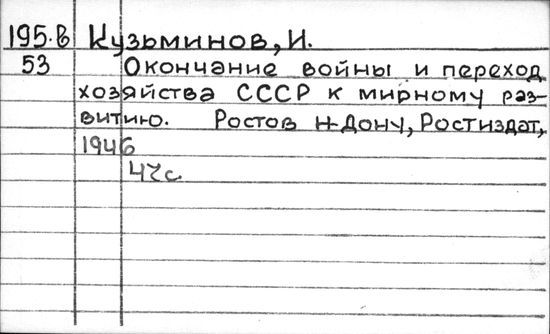 195.в Кузьминов, И.
53 Окончание войны и переход
хозяйства СССР к мирному раз-
витию. Ростов н-Дону, Ростиздат,
1946
47с.